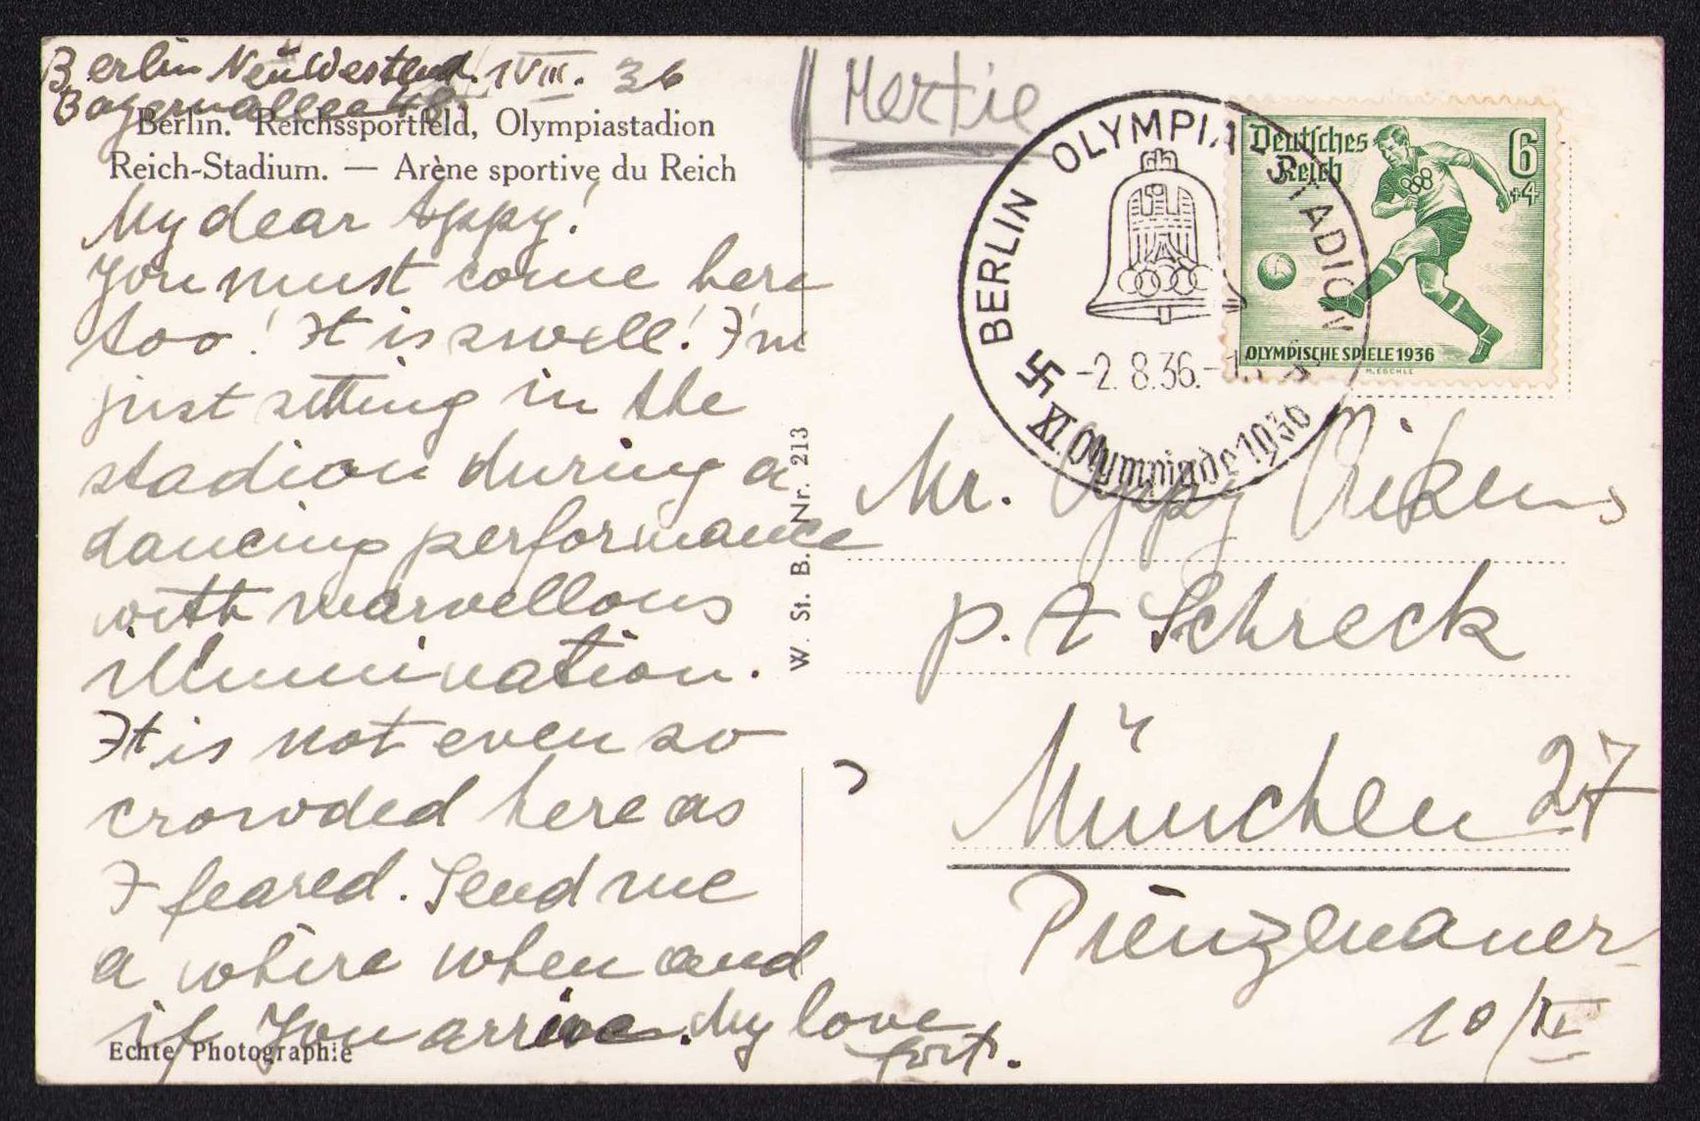 Berlin Neuwestend. 1 VIII. 36
Berlin. Reichssportfeld, Olympiastadion
Reich-Stadium. — Arène sportive du Reich
My dear Oyppy!
You must come here
too! It is swell! I'm
just sitting in the
stadion during a
dancing performance
with marvellous
illumination.
It is not even so
crowded here as
I feared. Send me
a where when and
if You arrive. My love
Echte Photographie
W. St. B. Nr. 213
Mertie
BERLIN OLYMPIA-STADION
-2.8.36.-
XI. Olympiade 1936
Deutsches
Reich
6
+4
OLYMPISCHE SPIELE 1936
M. ESCHLE
Mr. Oyppy
p. A Schreck
München 27
Pienzenauer
10/III